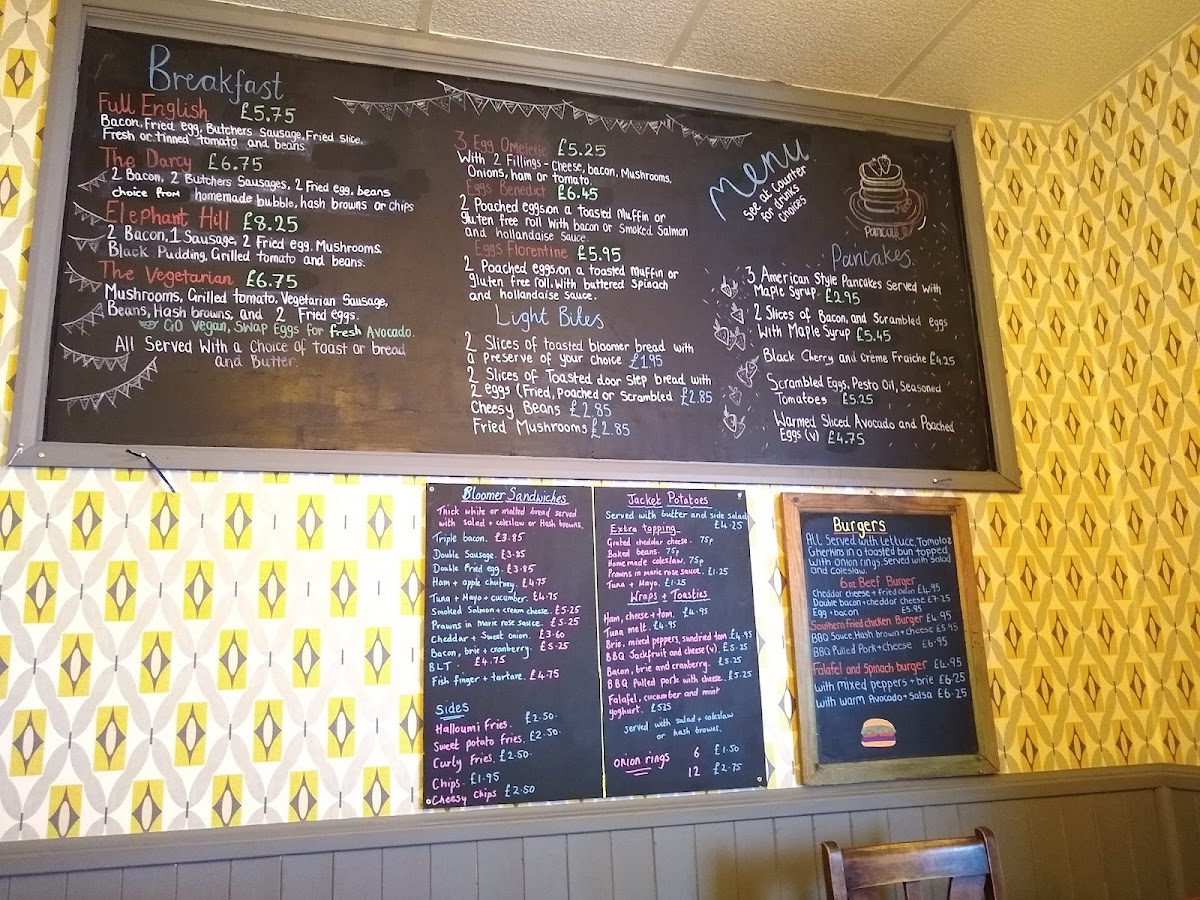 Breakfast
Full English £5.75
Bacon, Fried egg, Butchers Sausage, Fried slice,
Fresh or tinned tomato and beans
The Darcy £6.75
2 Bacon, 2 Butchers Sausages, 2 Fried egg, beans
choice from homemade bubble, hash browns or chips
Elephant Hill £8.25
2 Bacon, 1 Sausage, 2 Fried egg, Mushrooms.
Black Pudding, Grilled tomato and beans.
The Vegetarian £6.75
Mushrooms, Grilled tomato, Vegetarian Sausage,
Beans, Hash browns, and 2 Fried eggs.
GO Vegan, SWAP Eggs for fresh Avocado.
All Served With a Choice of toast or bread
and Butter.
3 Egg Omelette £5.25
With 2 Fillings - Cheese, bacon, Mushrooms,
Onions, ham or tomato.
Eggs Benedict £6.45
2 Poached eggs on a Toasted Muffin or
gluten free roll with bacon or Smoked Salmon
and hollandaise Sauce
Eggs Florentine £5.95
2 Poached eggs on a toasted muffin or
gluten free roll. With buttered spinach
and hollandaise sauce.
Light Bites
2 Slices of toasted bloomer bread with
a preserve of your choice £1.95
2 Slices of Toasted door Step bread with
2 eggs (Fried, Poached or Scrambled £2.85
Cheesy Beans £2.85
Fried Mushrooms £2.85
Menu
See at Counter
for drinks
choices
Pancakes
3 American Style Pancakes Served with
Maple Syrup. £2.95
2 Slices of Bacon, and Scrambled eggs
With Maple Syrup £5.45
Black Cherry and Crème Fraiche £4.25
Scrambled Eggs, Pesto Oil, Seasoned
Tomatoes £5.25
Warmed Sliced Avocado and Poached
Eggs (v) £4.75
Bloomer Sandwiches
Thick white or malted bread served
with salad + coleslaw or Hash browns.
Triple bacon. £3.85
Double Sausage. £3.85
Double Fried egg. £3.85
Ham + apple chutney. £4.75
Tuna + Mayo + cucumber. £4.75
Smoked Salmon + cream cheese. £5.25
Prawns in marie rose sauce. £5.25
Cheddar + Sweet onion. £3.60
Bacon, brie + cranberry. £5.25
BLT. £4.75
Fish finger + tartare. £4.75
Sides
Halloumi Fries. £2.50.
Sweet potato fries. £2.50.
Curly Fries. £2.50.
Chips. £1.95
Cheesy Chips £2.50
Jacket Potatoes
Served with butter and side salad
£4.25
Extra topping
Grated cheddar cheese. 75p
Baked beans. 75p
Homemade coleslaw. 75p
Prawns in marie rose sauce. £1.25
Tuna + Mayo. £1.25
Wraps + Toasties
Ham, cheese + tom. £4.95
Tuna melt. £4.95
Brie, mixed peppers, sundried tom £4.95
BBQ Jackfruit and cheese (v). £5.25
Bacon, brie and cranberry. £5.25
BBQ Pulled pork with cheese. £5.25
Falafel, cucumber and mint
yoghurt. £525
served with salad + coleslaw
or hash browns.
onion rings 6 £1.50
12 £2.75
Burgers
All Served with Lettuce, Tomatoe
Gherkins in a toasted bun topped
With onion rings. Served with Salad
and coleslaw.
6oz Beef Burger
Cheddar cheese + fried onion £4.95
Double bacon + cheddar cheese £7.25
Egg + bacon £5.95
Southern Fried chicken Burger £4.95
BBQ Sauce, Hash brown + cheese £5.95
BBQ Pulled Pork + cheese £6.95
Falafel and Spinach burger £4.95
With mixed peppers + brie £6.25
With warm Avocado + Salsa £6.25